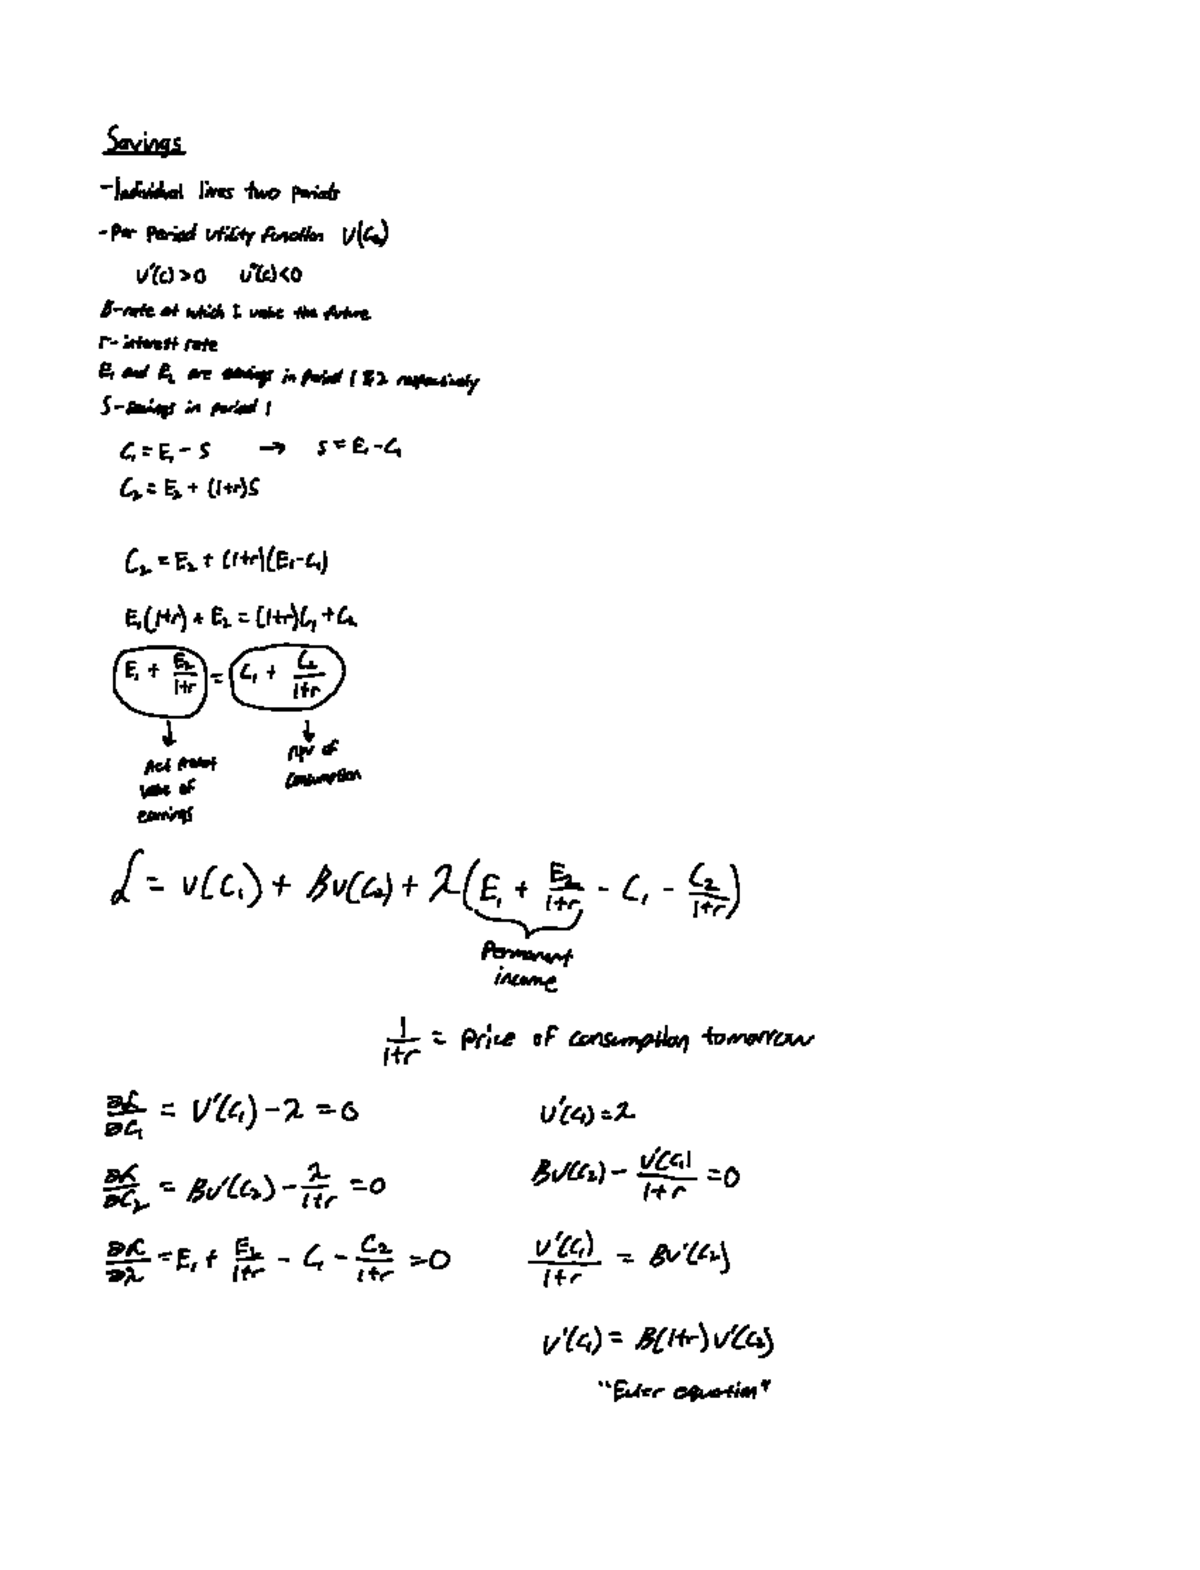 Savings
- Individual lives two periods
- Per Period utility function U(C₂)
U'(C) > 0 U''(C) < 0
B - rate at which I value the future
r - interest rate
E₁ and E₂ are earnings in period 1 & 2 respectively
S - savings in period 1
C₁ = E₁ - S → S = E₁ - C₁
C₂ = E₂ + (1+r)S
C₂ = E₂ + (1+r)(E₁ - C₁)
E₁(1+r) + E₂ = (1+r)C₁ + C₂
E₁ + E₂/(1+r) = C₁ + C₂/(1+r)
↓ ↓
value of npv of
earnings consumption
ℒ = U(C₁) + BU(C₂) + λ(E₁ + E₂/(1+r) - C₁ - C₂/(1+r))
Permanent
income
1/(1+r) = Price of consumption tomorrow
∂ℒ/∂C₁ = U'(C₁) - λ = 0 U'(C₁) = λ
∂ℒ/∂C₂ = BU'(C₂) - λ/(1+r) = 0 BU(C₂) - U'(C₁)/(1+r) = 0
∂ℒ/∂λ = E₁ + E₂/(1+r) - C₁ - C₂/(1+r) = 0 U'(C₁)/(1+r) = BU'(C₂)
U'(C₁) = B(1+r)U'(C₂)
"Euler equation"